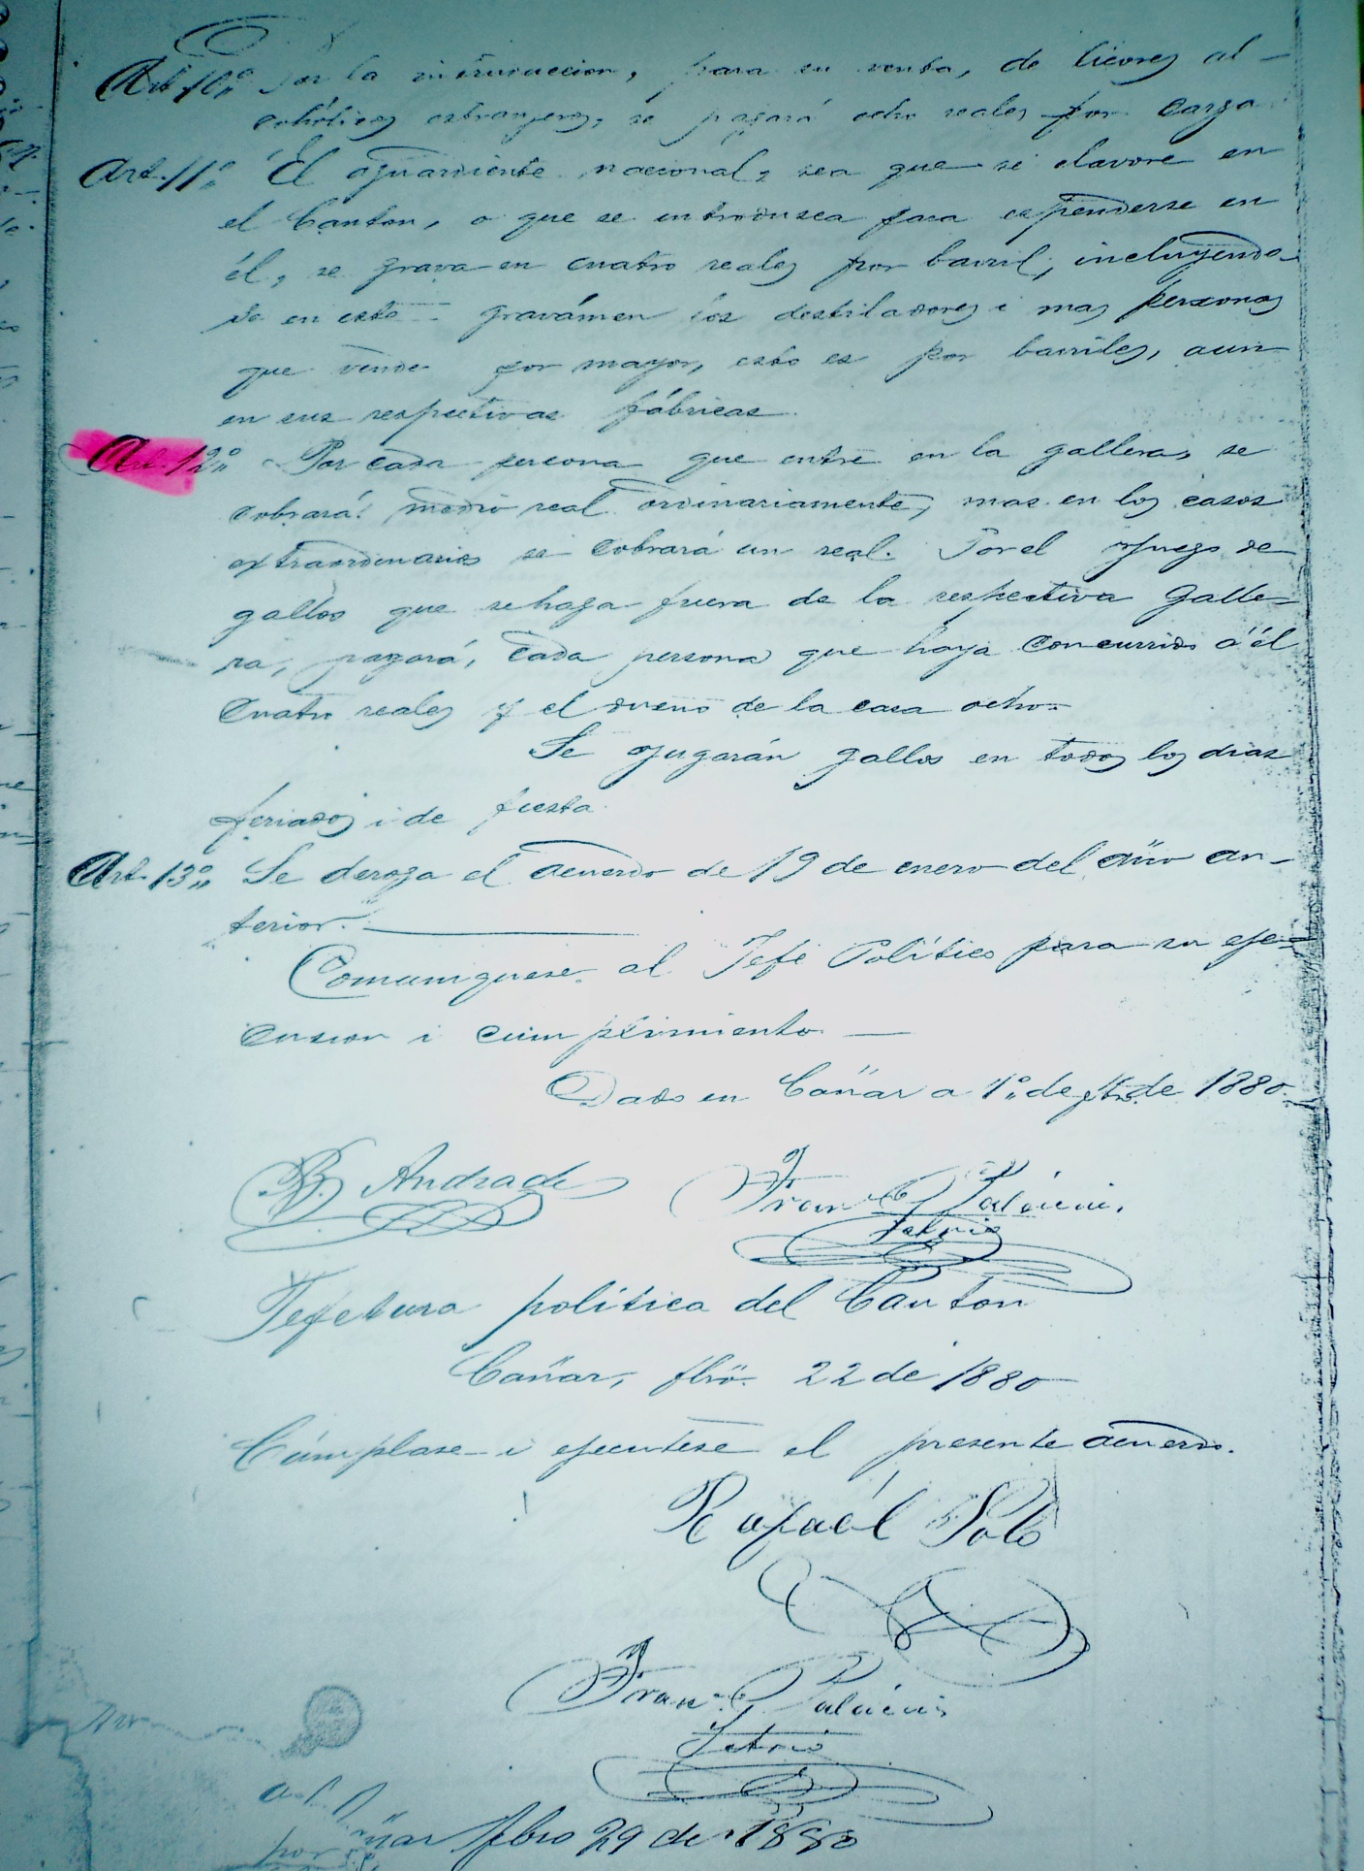 Art. 10º Por la introduccion, para su venta, de licores al-
cohólicos estranjeros, se pagará ocho reales por carga
Art. 11º El aguardiente nacional, sea que se elavore en
el Canton, o que se introdusca para espenderse en
él, se grava en cuatro reales por barril, incluyendo-
se en este gravámen los destiladores i mas personas
que vende por mayor, esto es por barriles, aun
en sus respectivas fábricas.
Art. 12º Por cada persona que entre en la gallera, se
cobrará medio real ordinariamente, mas en los casos
extraordinarios se cobrará un real. Por el juego de
gallos que se haga fuera de la respectiva galle-
ra, pagará, cada persona que haya concurrido á él
cuatro reales y el dueño de la casa ocho.
Se jugarán gallos en todos los dias
feriados i de fiesta.
Art. 13º Se deroga el acuerdo de 19 de enero del año an-
terior.
Comuniquese al Jefe Político para su eje-
cusion i cumplimiento.
Dado en Cañar a 1º de de 1880.
B. Andrade Franco Palacios
Setrio
Jefetura política del Canton
Cañar, fbro. 22 de 1880
Cúmplase i ejecutese el presente acuerdo.
Rafaél Polo
Fran. Palacios
Setrio
por
ñar fbro 29 de 1880